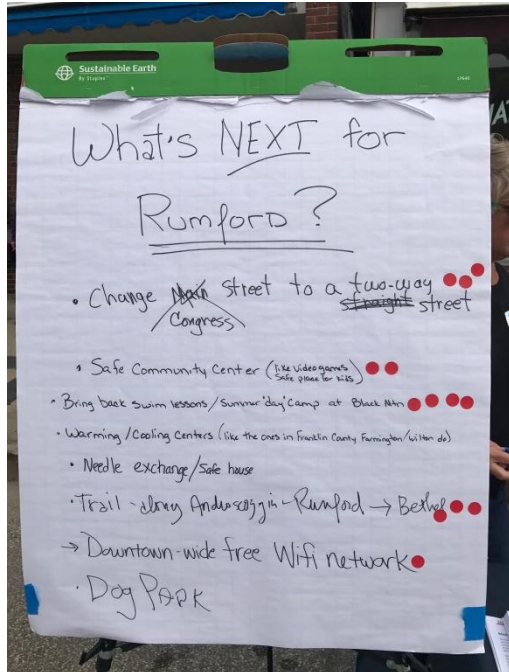 Sustainable Earth
By Staples
What's NEXT for
Rumford?
• Change Main street to a two-way
Congress straight street
• Safe Community Center (like video games
safe place for kids)
• Bring back swim lessons/Summer 'day' Camp at Black Mtn
• Warming/Cooling Centers (like the ones in Franklin County Farmington/Wilton do)
• Needle exchange/Safe house
• Trail - along Androscoggin - Rumford → Bethel
→ Downtown-wide free Wifi network
• Dog PARK